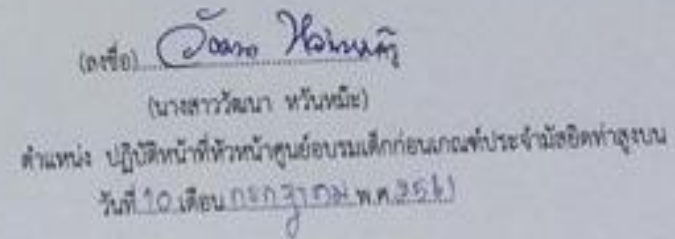 (ลงชื่อ) วัฒนา หวันหมีะ
(นางสาววัฒนา หวันหมีะ)
ตำแหน่ง ปฏิบัติหน้าที่หัวหน้าศูนย์อบรมเด็กก่อนเกณฑ์ประจำมัสยิดท่าสูงบน
วันที่ 10 เดือน กรกฎาคม พ.ศ. 2561